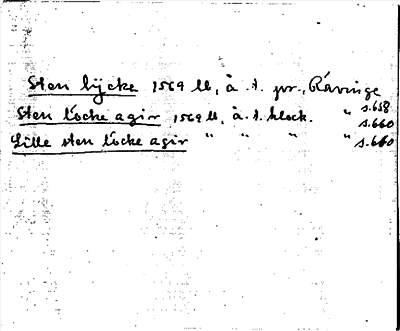 Sten lycke 1569 ll, å .s. pr., Rävinge s.658
Sten löcke agir 1569 ll, å .s. klock. " s.660
Lille sten löcke agir " " " " s.660